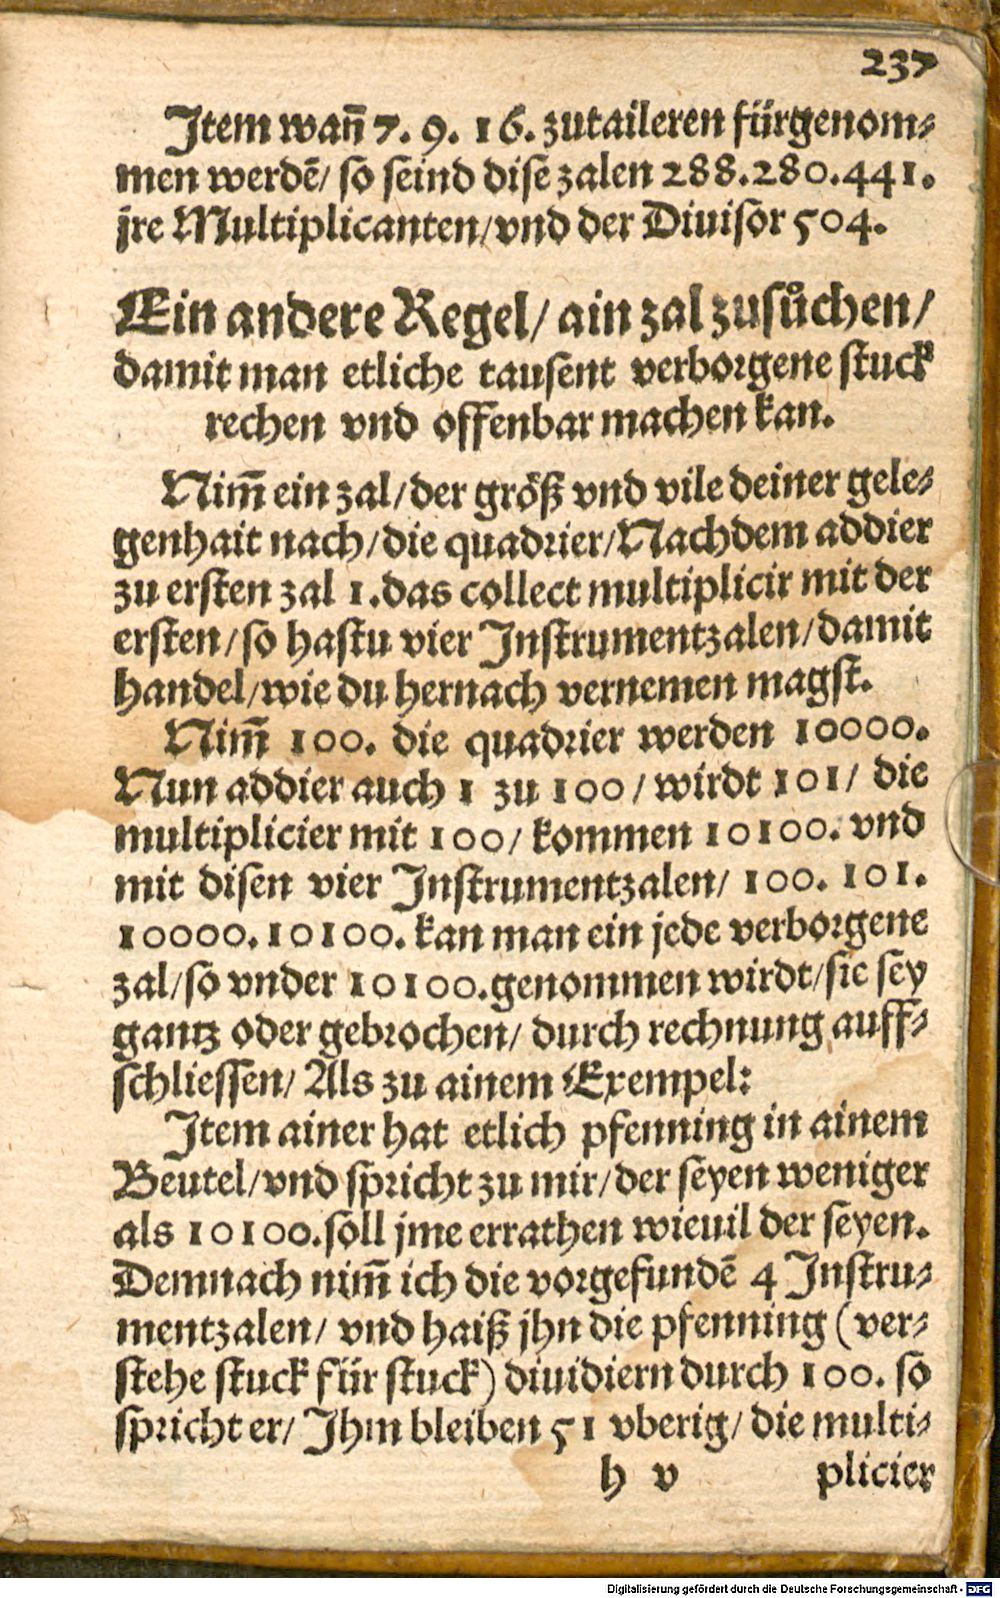 237
Item wañ 7. 9. 16. zutaileren fürgenom⸗
men werdẽ/ so seind dise zalen 288.280.441.
jre Multiplicanten/vnd der Diuisor 504.
Ein andere Regel/ ain zal zusůchen/
damit man etliche tausent verborgene stuck
rechen vnd offenbar machen kan.
Nim̃ ein zal/der größ vnd vile deiner gele⸗
genhait nach/die quadrier/Nachdem addier
zu ersten zal 1.das collect multiplicir mit der
ersten/so hastu vier Instrumentzalen/damit
handel/wie du hernach vernemen magst.
Nim̃ 100. die quadrier werden 10000.
Nun addier auch 1 zu 100/ wirdt 101/ die
multiplicier mit 100/ kommen 10100. vnd
mit disen vier Instrumentzalen/ 100. 101.
10000.10100. kan man ein jede verborgene
zal/so vnder 10100.genommen wirdt/sie sey
gantz oder gebrochen/ durch rechnung auff⸗
schliessen/ Als zu ainem Exempel:
Item ainer hat etlich pfenning in ainem
Beutel/vnd spricht zu mir/der seyen weniger
als 10100.soll jme errathen wieuil der seyen.
Demnach nim̃ ich die vorgefundẽ 4 Instru⸗
mentzalen/ vnd haiß jhn die pfenning (ver⸗
stehe stuck für stuck) diuidiern durch 100. so
spricht er/ Ihm bleiben 51 vberig/ die multi⸗
h v plicier
Digitalisierung gefördert durch die Deutsche Forschungsgemeinschaft - DFG